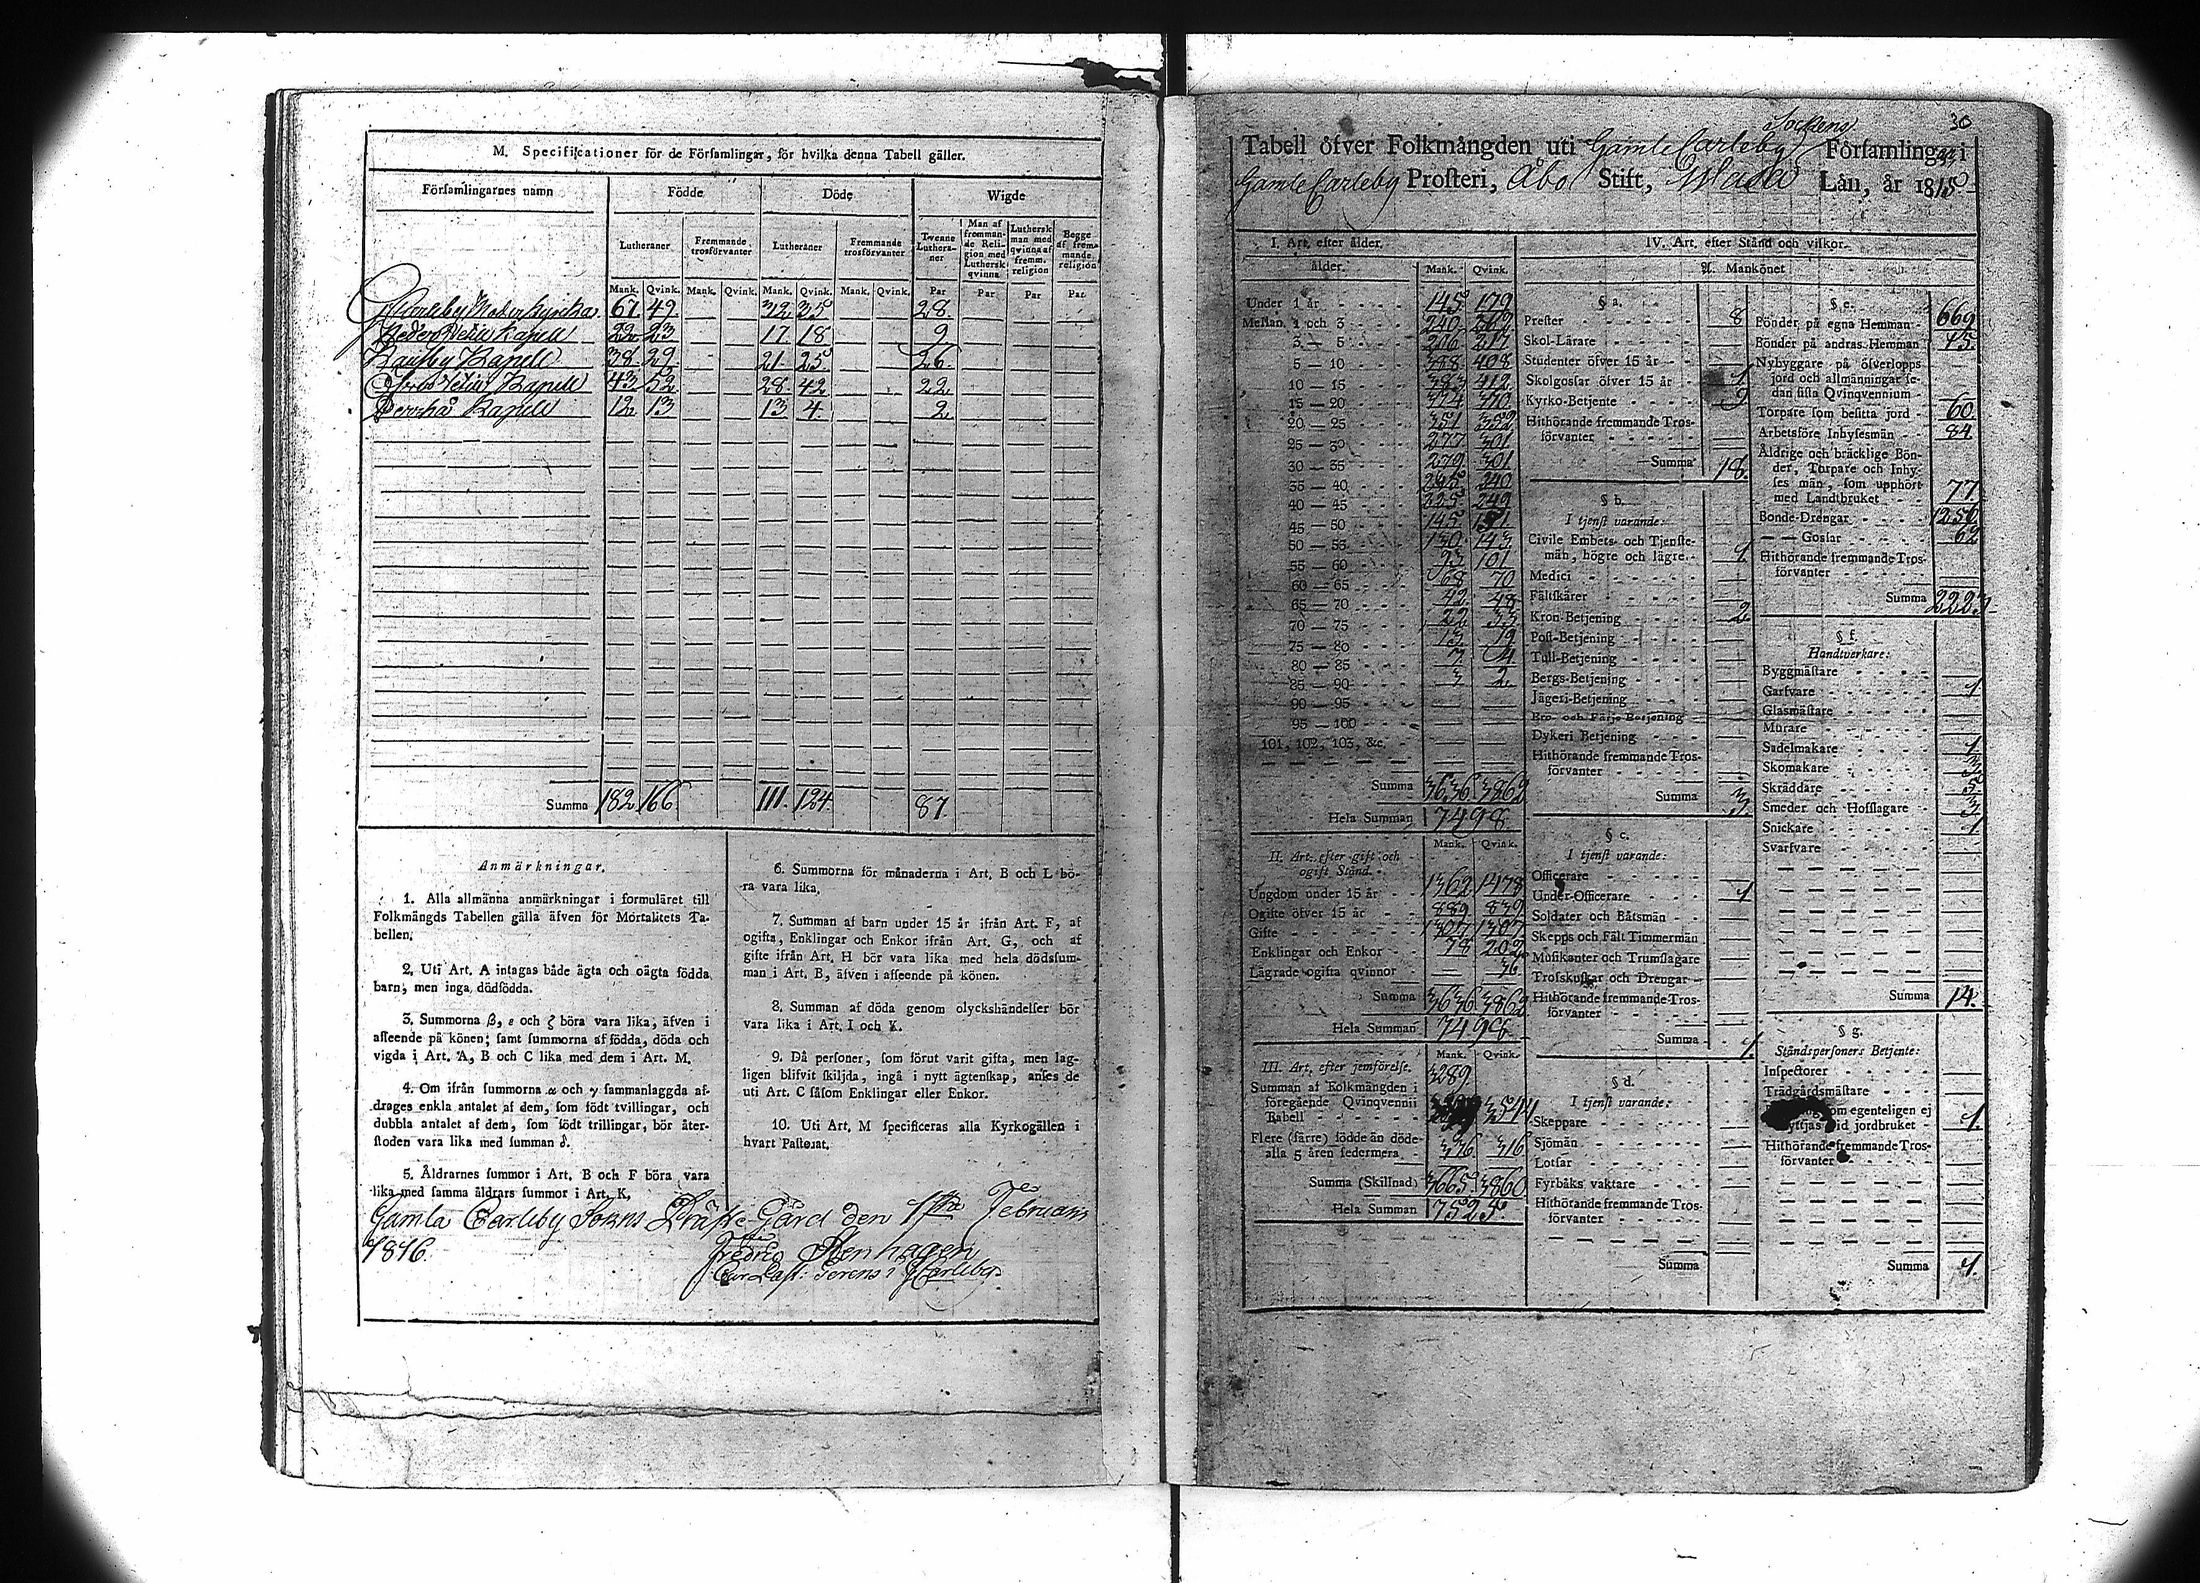 M. Specificationer för de Församlingar, för hvilka denna Tabell gäller.
Församlingarnes namn Födde Döde Wigde
Lutheraner Fremmande trosförvanter Lutheraner Fremmande trosförvanter Tvenne Lutheraner Man af fremmande Religion med Luthersk qvinna Luthersk man med qvinna af fremm. religion Begge af fremmande religion
Mank. Qvink. Mank. Qvink. Mank. Qvink. Mank. Qvink. Par Par Par Par
GCarleby Moderkyrka 67. 49. 32 35 28.
Neder Vetil Kapell 22 23 17. 18 9
Kaustby Kapell 38. 29. 21. 25. 26.
Öfver Vetil Kapell 43 52 28. 42 22
Perrhå Kapell 12 13 13 4. 2
Summa 182 166 111. 124 87.
Anmärkningar.
1. Alla allmänna anmärkningar i formuläret till
Folkmängds Tabellen gälla äfven för Mortalitets Ta-
bellen.
2. Uti Art. A intagas både ägta och oägta födda
barn, men inga dödfödda.
3. Summorna β, ε och ζ böra vara lika, äfven i
afseende på könen; samt summorna af födda, döda och
vigda i Art. A, B och C lika med dem i Art. M.
4. Om ifrån summorna α och γ sammanlaggda af-
drages enkla antalet af dem, som födt tvillingar, och
dubbla antalet af dem, som födt trillingar, bör åter-
stoden vara lika med summan δ.
5. Åldrarnes summor i Art. B och F böra vara
lika med samma åldrars summor i Art. K.
6. Summorna för månaderna i Art. B och L bö-
ra vara lika.
7. Summan af barn under 15 år ifrån Art. F, af
ogifta, Enklingar och Enkor ifrån Art. G, och af
gifte ifrån Art. H bör vara lika med hela dödssum-
man i Art. B, äfven i afseende på könen.
8. Summan af döda genom olyckshändelser bör
vara lika i Art. I och K.
9. Då personer, som förut varit gifta, men lag-
ligen blifvit skiljda, ingå i nytt ägtenskap, anses de
uti Art. C såsom Enklingar eller Enkor.
10. Uti Art. M specificeras alla Kyrkogällen i
hvart Pastorat.
Gamla Carleby Sokns Präste-Gård den 1sta Februarii
1816.
Fredric Stenhagen
30
Sockens
Tabell öfver Folkmängden uti Gamle Carleby Församlingar i
Gamle Carleby Prosteri, Åbo Stift, Wasa Län, år 1815
I. Art. efter ålder.
ålder. Mank. Qvink.
Under 1 år 145 179
Mellan 1 och 3 240
3 — 5 206 217
5 — 10 388 408
10 — 15 383 412
15 — 20 374 370
20 — 25 351 352
25 — 30 277 301
30 — 35 279 301
35 — 40 245 240
40 — 45 225 249
45 — 50 145
50 — 55 130 143
55 — 60 93 101
60 — 65 68 70
65 — 70 42 48
70 — 75 22 33
75 — 80 13 19
80 — 85 7 4
85 — 90 3 2
90 — 95
95 — 100
101, 102, 103, &c.
Summa 3636 3862
Hela Summan 7498.
II. Art. efter gift och ogift Stånd. Mank. Qvink.
Ungdom under 15 år 1362 1478
Ogifte öfver 15 år 889 839
Gifte 1307 1307
Enklingar och Enkor 78 202
Lägrade ogifta qvinnor 36
Summa 3636 3862
Hela Summan 7498.
III. Art. efter jemförelse. Mank. Qvink.
3289
Summan af Folkmängden i
föregående Qvinqvennii
Tabell 3544
Flere (färre) födde än döde
alla 5 åren sedermera 376. 316
Summa (Skillnad) 3665 3860
Hela Summan 7525.
IV. Art. efter Stånd och vilkor.
A. Mankönet
§ a.
Prester 8
Skol-Lärare
Studenter öfver 15 år
Skolgossar öfver 15 år 1
Kyrko-Betjente 9
Hithörande fremmande Tros-
förvanter
Summa 18.
§ b.
I tjenst varande:
Civile Embets- och Tjenste-
män, högre och lägre 1
Medici
Fältskärer
Kron-Betjening 2
Post-Betjening
Tull-Betjening
Bergs-Betjening
Jägeri-Betjening
Bro- och Färje-Betjening
Dykeri Betjening
Hithörande fremmande Tros-
förvanter
Summa 3.
§ c.
I tjenst varande:
Officerare
Under-Officerare 1
Soldater och Båtsmän
Skepps och Fält Timmermän
Musikanter och Trumslagare
Trosskuskar och Drengar
Hithörande fremmande Tros-
förvanter
Summa 1.
§ d.
I tjenst varande:
Skeppare
Sjömän
Lotsar
Fyrbåks vaktare
Hithörande fremmande Tros-
förvanter
Summa
§ e.
Bönder på egna Hemman 669
Bönder på andras Hemman 15
Nybyggare på öfverlopps
jord och allmänningar se-
dan sista Qvinqvennium
Torpare som besitta jord 60.
Arbetsföre Inhysesmän 84
Åldrige och bräcklige Bön-
der, Torpare och Inhy-
ses män, som upphört
med Landtbruket 77
Bonde-Drengar 1256
— — Gossar 62
Hithörande fremmande Tros-
förvanter
Summa 2223
§ f.
Handtverkare:
Byggmästare
Garfvare 1
Glasmästare
Murare
Sadelmakare 1
Skomakare 3
Skräddare 5
Smeder och Hofslagare 3
Snickare 1
Svarfvare
Summa 14.
§ g.
Ståndspersoners Betjente:
Inspectorer
Trädgårdsmästare
som egenteligen ej
nyttjas vid jordbruket 1.
Hithörande fremmande Tros-
förvanter
Summa 1.